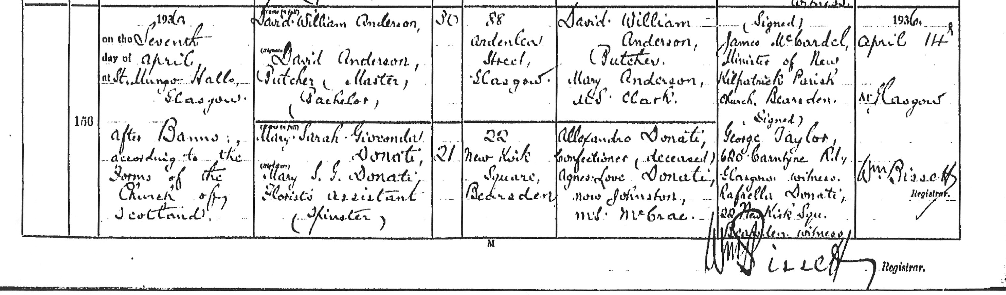 166
1936.
on the Seventh
day of April
at St. Mungo Halls,
Glasgow.
After Banns,
according to the
Forms of the
Church of
Scotland.
David William Anderson,
(Signed)
David Anderson,
Butcher (Master)
(Bachelor)
Mary Sarah
Donati,
Mary S. G. Donati
Florist's Assistant
(Spinster)
30
21
88
Ardenlea
Street,
Glasgow.
22
New Kirk
Square,
Bearsden
David William
Anderson,
Butcher.
Mary Anderson,
M.S. Clark.
Alexandro Donati,
Confectioner (deceased)
Agnes Love Donati,
now Johnston,
M.S. McCrae.
(Signed)
James McCardel,
Minister of New
Kilpatrick Parish
Church, Bearsden.
(Signed)
George Taylor,
680 Carntyne Rd.,
Glasgow witness.
Rafaella Donati,
22 New Kirk Sqre.
Bearsden witness
1936.
April 14th
At Glasgow
Wm Bissett
Registrar.
M
Wm Bissett
Registrar.